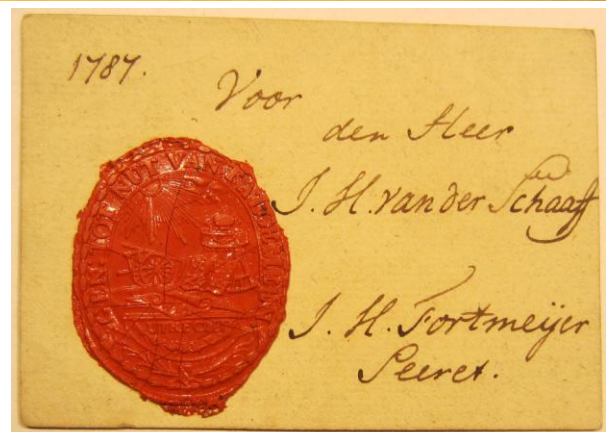 1787.
Voor
den Heer
J. H. van der Schaaff
J. H. Fortmeijer
Secret.
TOT NUT VAN